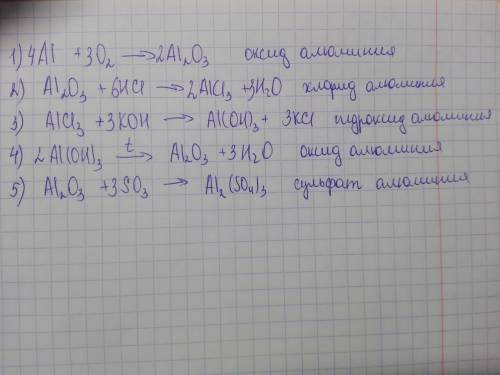 1) 4Al + 3O₂ → 2Al₂O₃ оксид алюминия
2) Al₂O₃ + 6HCl → 2AlCl₃ + 3H₂O хлорид алюминия
3) AlCl₃ + 3KOH → Al(OH)₃ + 3KCl гидроксид алюминия
4) 2Al(OH)₃ t→ Al₂O₃ + 3H₂O оксид алюминия
5) Al₂O₃ + 3SO₃ → Al₂(SO₄)₃ сульфат алюминия